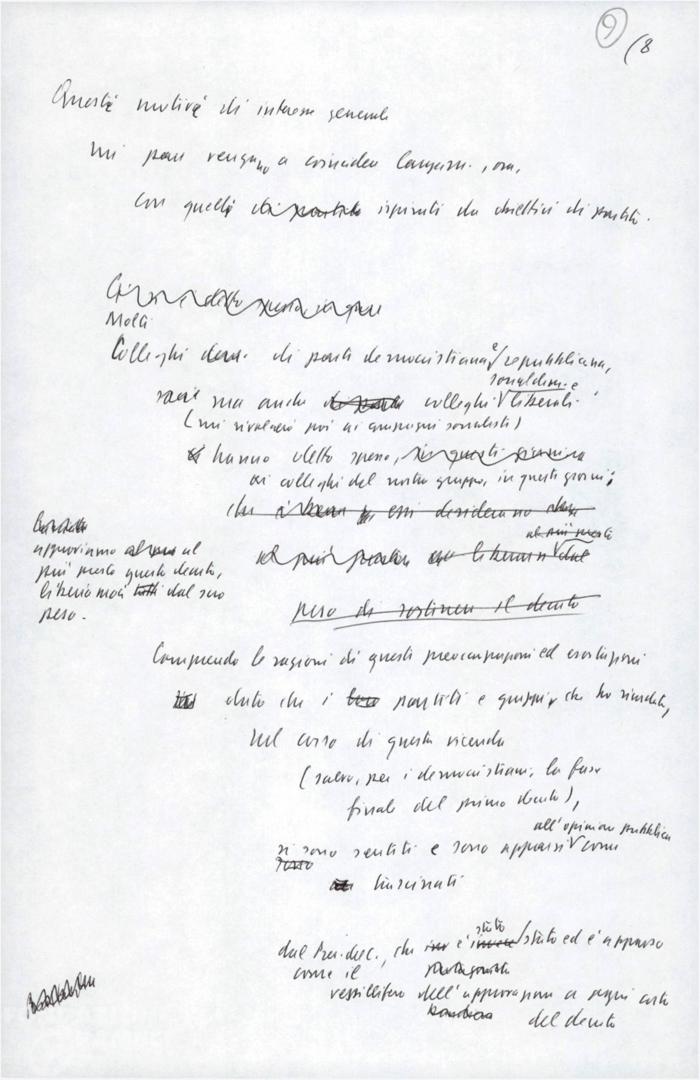 9 / 8
Questi motivi di interesse generale
mi pare vengano a coincidere , ora,
con quelli di partito ispirati da obiettivi di partito.
Molti
Colleghi di parte democristiana e repubblicana,
ma anche colleghi socialdem. e liberali
(mi rivolgerò poi ai compagni socialisti)
hanno detto spesso, in questi giorni
ai colleghi del nostro gruppo, in questi giorni:
che essi desiderano
al più presto
liberarsi dal
peso di sostenere il decreto
approviamo al
più presto questo decreto,
liberiamoci tutti dal suo
peso.
Comprendo le ragioni di questi preoccupazioni ed esortazioni
dato che i loro partiti e gruppi, che ho ricordato,
nel corso di questa vicenda
(salvo, per i democristiani, la fase
finale del primo decreto),
all'opinione pubblica
si sono sentiti e sono apparsi come
trascinati
stato
dal Pri-dec., che è stato ed è apparso
come il protagonista
vessillifero dell'approvazione a ogni costo
del decreto